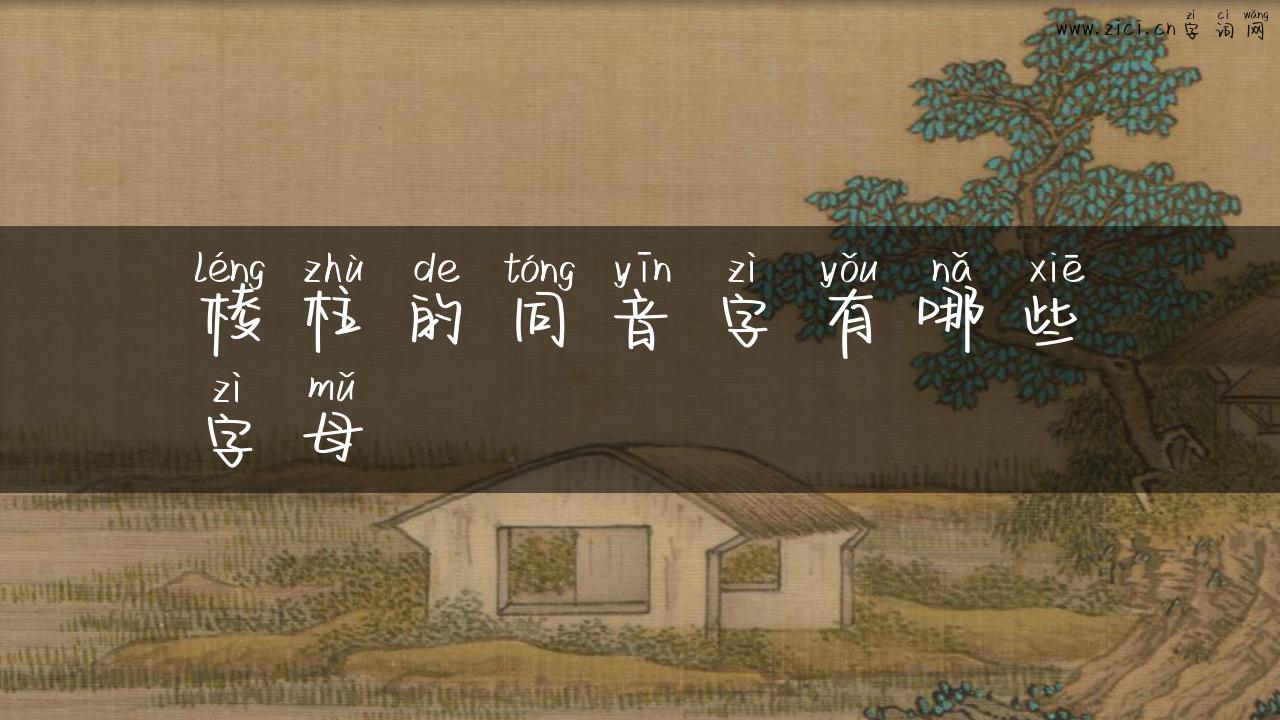 zì cí wǎng
www.zici.cn 字词网
léng zhù de tóng yīn zì yǒu nǎ xiē
棱柱的同音字有哪些
zì mǔ
字母